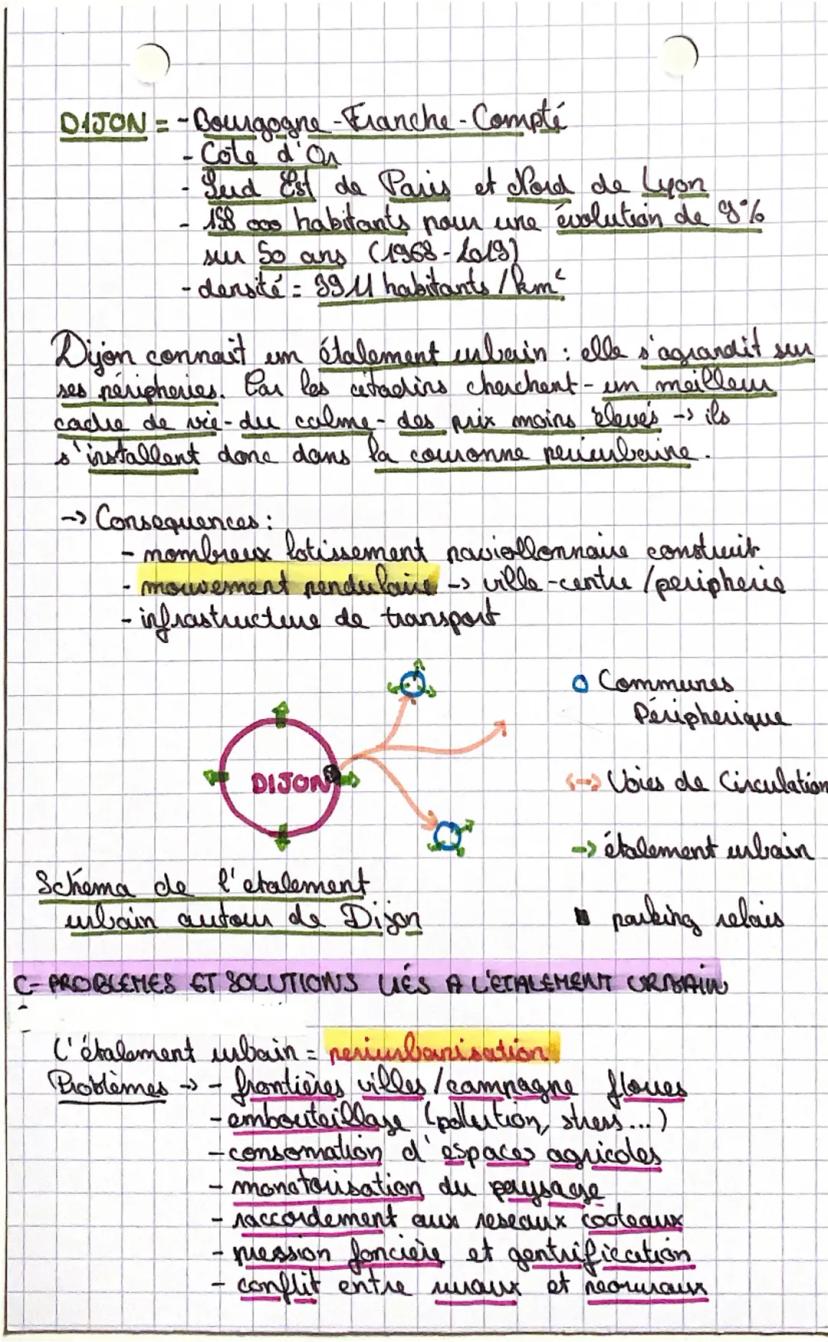 DIJON = - Bourgogne - Franche - Compté
- Cote d'Or
- Sud Est de Paris et Nord de Lyon
- 158 000 habitants pour une évolution de 9%
sur 50 ans (1968 - 2019)
- densité = 3911 habitants / km²
Dijon connait um étalement urbain : elle s'agrandit sur
ses péripheries. Car les citadins cherchent - un meilleur
cadre de vie - du calme - des prix moins élevés -> ils
s'installent donc dans la couronne periurbaine.
-> Consequences :
- nombreux lotissement paviollonnaire construit
- mouvement pendulaire -> ville-centre / peripherie
- infrastructure de transport
DIJON
Communes
Péripherique
Voies de Circulation
étalement urbain
parking relais
Schéma de l'etalement
urbain autour de Dijon
C- PROBLEMES ET SOLUTIONS LIÉS A L'ETALEMENT URBAIN
L'étalement urbain = periurbanisation
Problèmes -> - frontières villes / campagne floues
- embouteillage (pollution, stress...)
- consomation d'espaces agricoles
- monotorisation du paysage
- raccordement aux reseaux cooteaux
- pression foncière et gentrification
- conflit entre ruraux et neoruraux